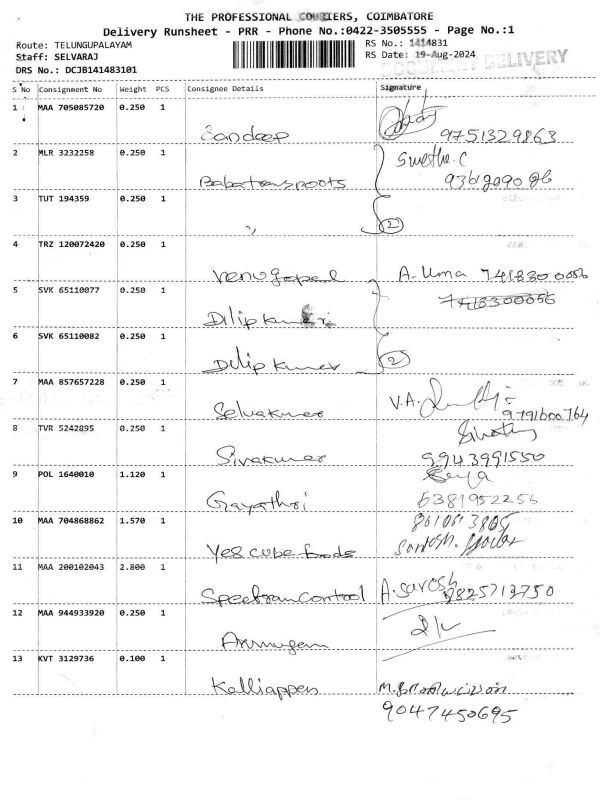 THE PROFESSIONAL COURIERS, COIMBATORE
Delivery Runsheet - PRR - Phone No.:0422-3505555 - Page No.:1
Route: TELUNGUPALAYAM
Staff: SELVARAJ
DRS No.: DCJB141483101
RS No.: 1414831
RS Date: 19-Aug-2024
DOCUMENT DELIVERY
S No Consignment No Weight PCS Consignee Details Signature
1 MAA 705085720 0.250 1
Sandeep 9751329863
2 MLR 3232258 0.250 1 Swetha.C
3 TUT 194359 0.250 1
" 2
4 TRZ 120072420 0.250 1
Venugopal A. Uma 7418300056
5 SVK 65110077 0.250 1 7418300056
Dilip kumar
6 SVK 65110082 0.250 1
Dilip kumar 2
7 MAA 857657228 0.250 1
Selvakumar V.A. 9791600764
8 TVR 5242895 0.250 1
Sivakumar 9943991550
9 POL 1640010 1.120 1
Gayathri 6381952256
10 MAA 704868862 1.570 1 8610613805
Yes cube foods
11 MAA 200102043 2.800 1
Spectrum Control 9825713750
12 MAA 944933920 0.250 1
Arumugam
13 KVT 3129736 0.100 1
Kalliappan
9047450695